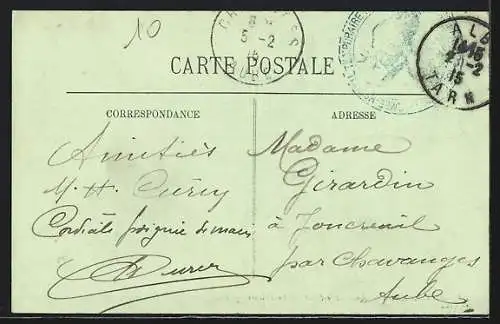 10
5-2
CARTE POSTALE
ALBI
14 15
2-2
15
TARN
CORRESPONDANCE
ADRESSE
Amitiés
M. H.
Cordiale poignée de mains
Madame
Girardin
à Joncreuil
par Chavanges
Aube